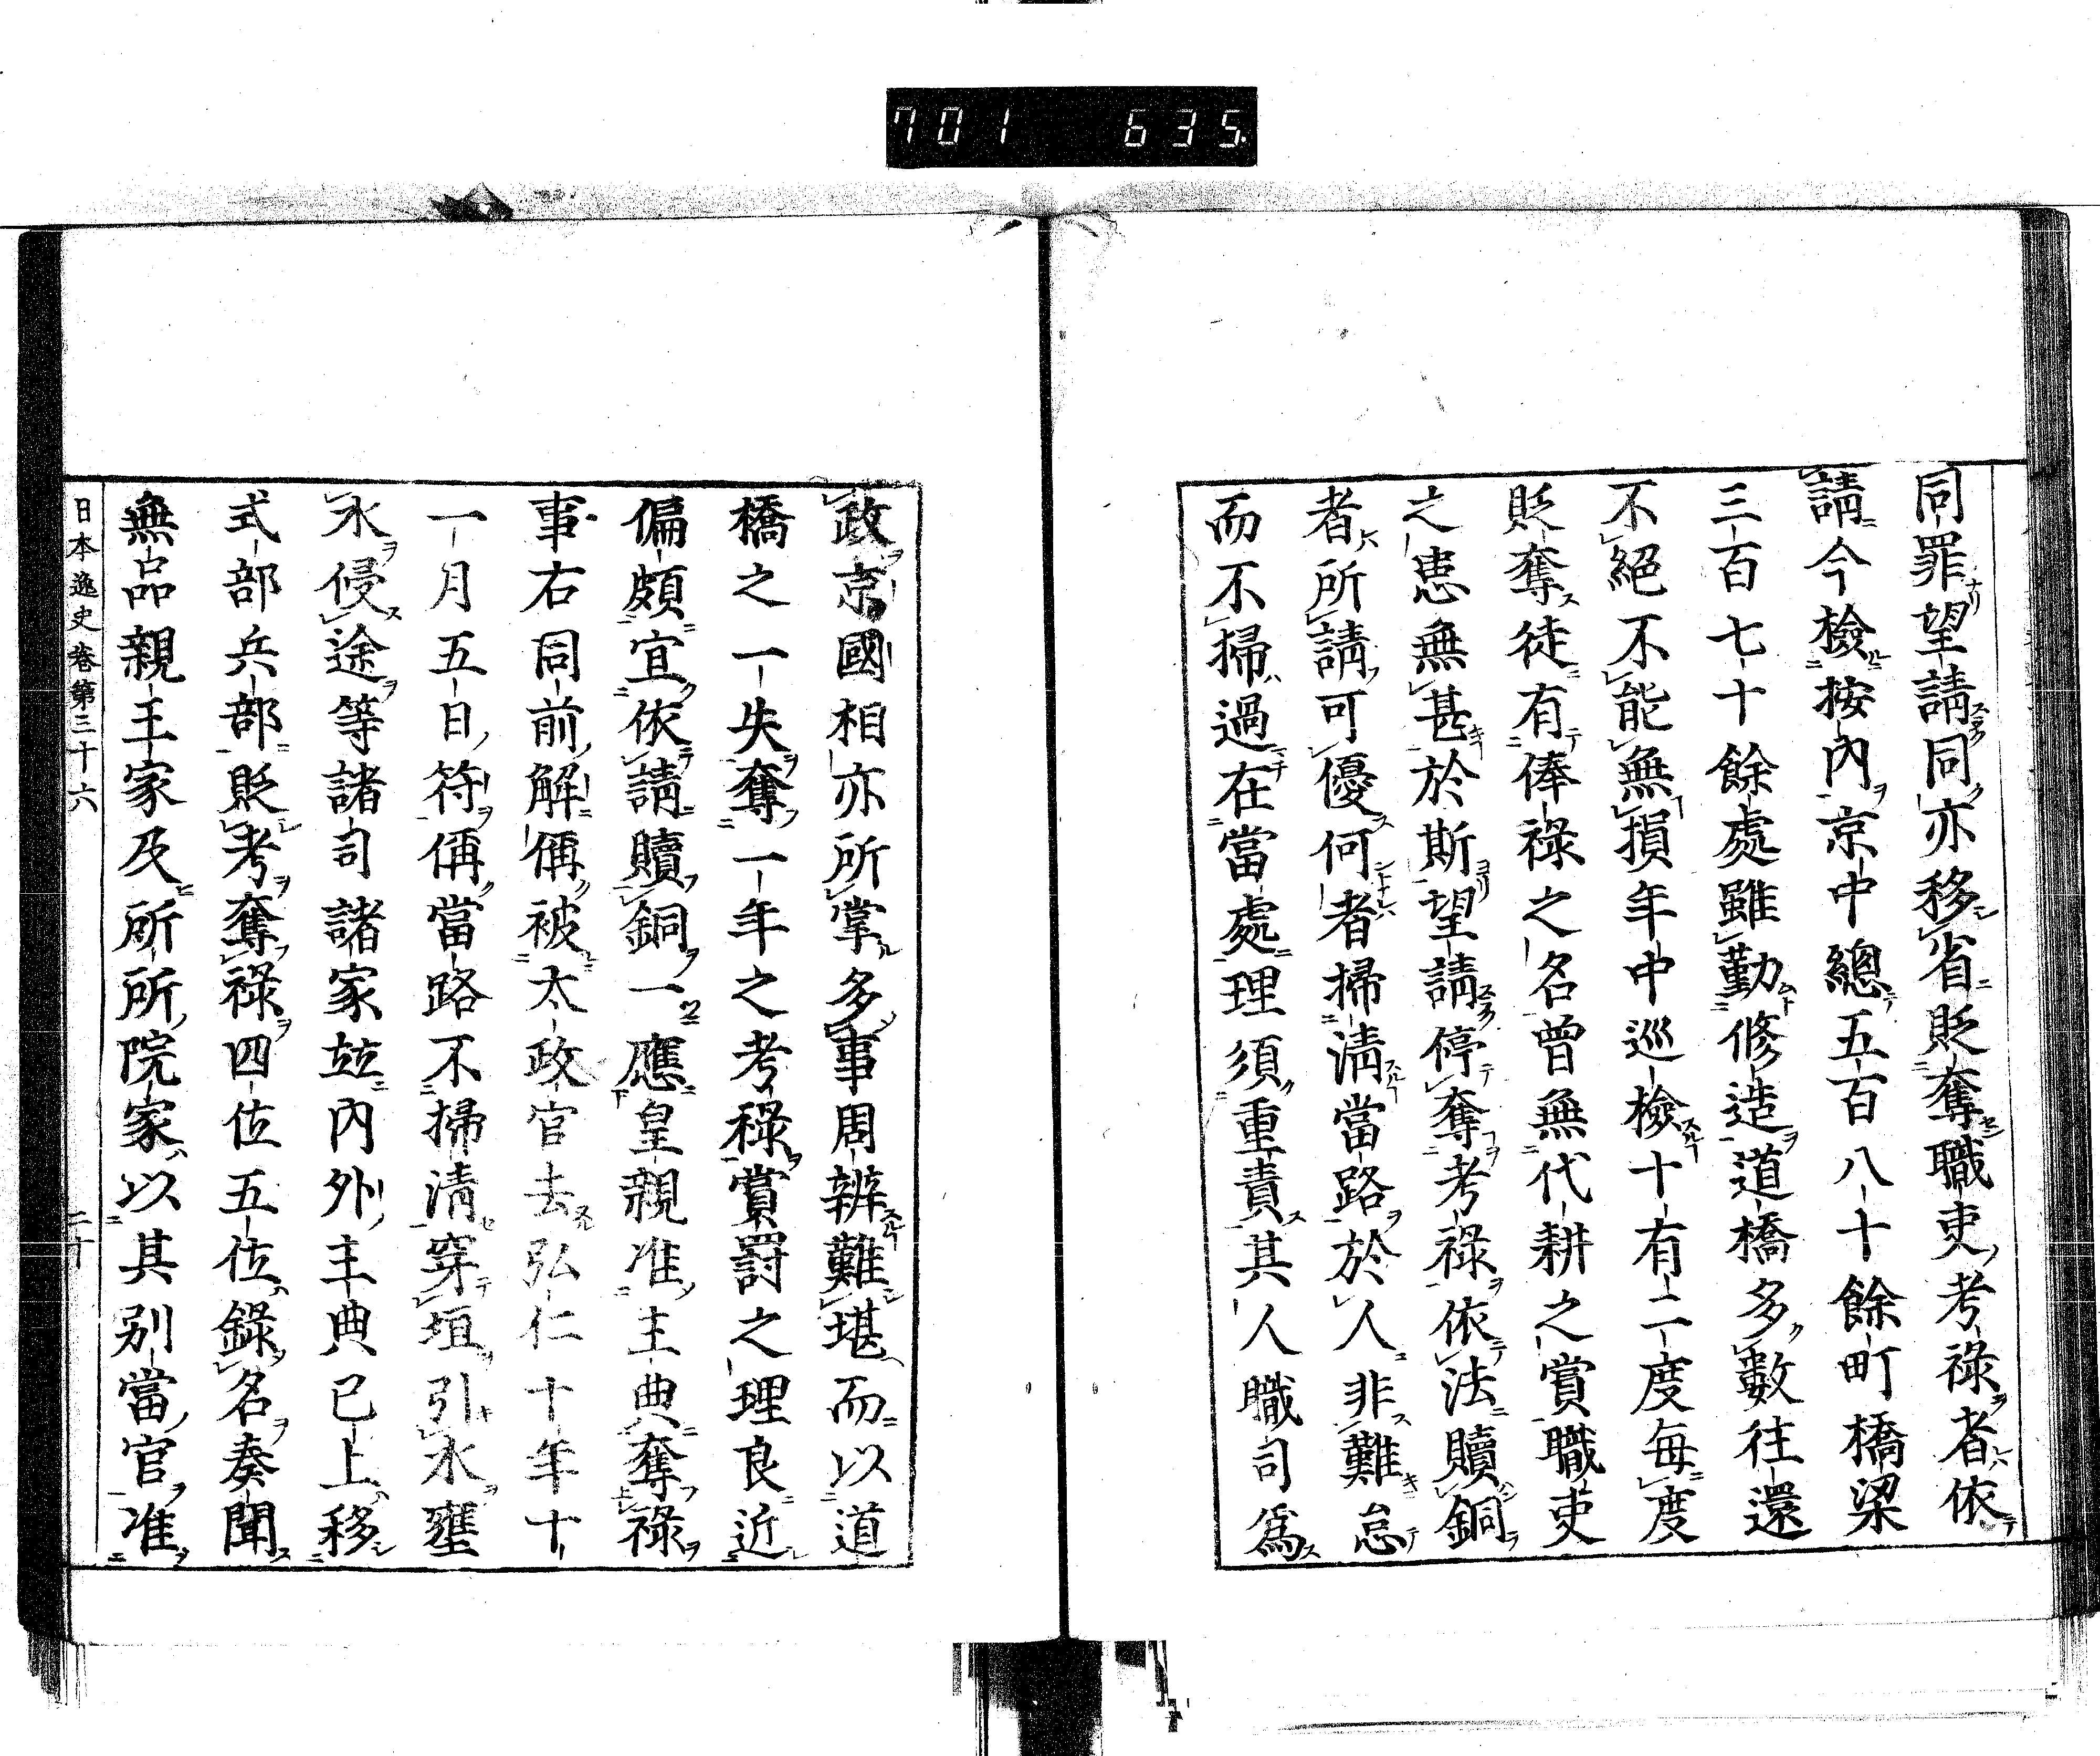 701 635
同罪望請同亦移省貶奪職吏考祿者依
請今檢按內京中總五百八十餘町橋梁
三百七十餘處雖勤修造道橋多數往還
不絕不能無損年中巡檢十有二度每度
貶奪徒有俸祿之名曾無代耕之賞職吏
之患無甚於斯望請停奪考祿依法贖銅
者所請可優何者掃清當路於人非難怠
而不掃過在當處理須重責其人職司爲
政京國相亦所掌多事周辨難堪而以道
橋之一失奪一年之考祿賞罰之理良近
偏頗宜依請贖銅一應皇親准主典奪祿
事右同前解偁被太政官去弘仁十年十
一月五日符偁當路不掃清穿垣引水壅
水侵途等諸司諸家竝內外主典已上移
式部兵部貶考奪祿四位五位錄名奏聞
無品親王家及所所院家以其別當官准
日本逸史卷第三十六
二十